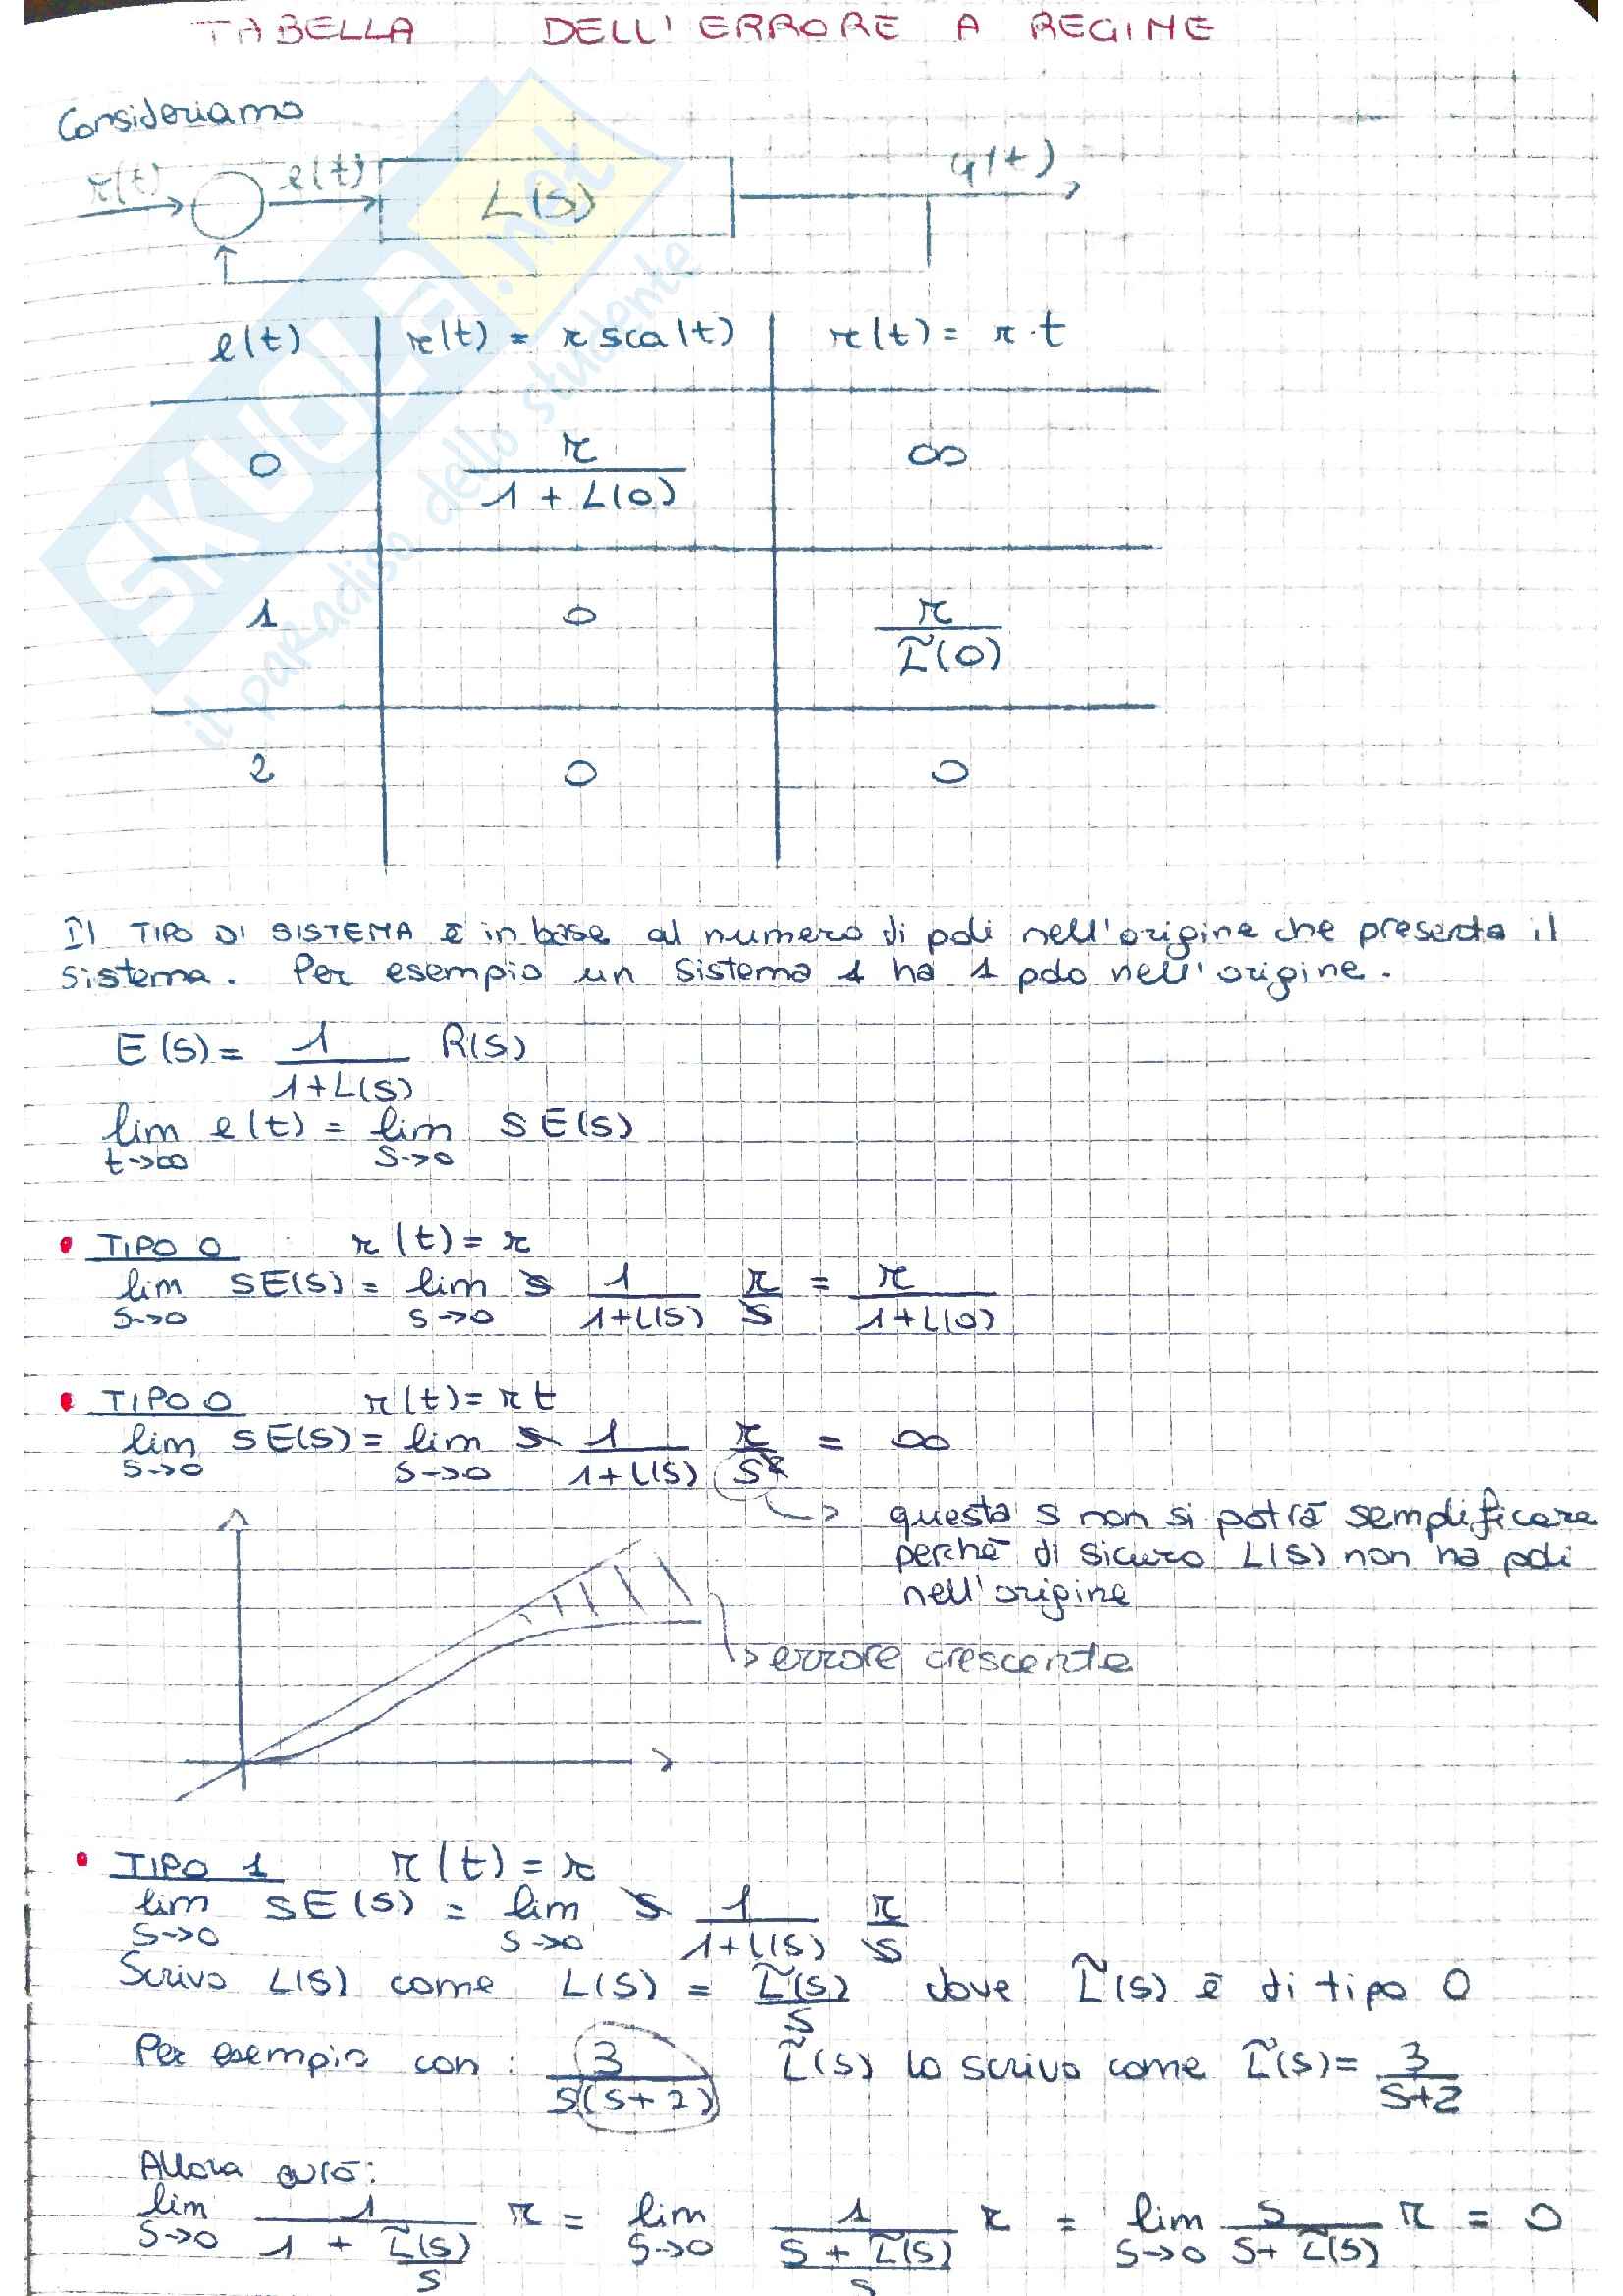 TABELLA DELL'ERRORE A REGIME
Consideriamo
r(t) e(t) L(s) y(t)
e(t) r(t) = r sca(t) r(t) = r·t
0 r/(1 + L(0)) ∞
1 0 r/L̃(0)
2 0 0
Il TIPO DI SISTEMA è in base al numero di poli nell'origine che presenta il
sistema. Per esempio un sistema 1 ha 1 polo nell'origine.
E(s) = 1/(1+L(s)) R(s)
lim t->∞ e(t) = lim s->0 s E(s)
• TIPO 0 r(t) = r
lim s->0 sE(s) = lim s->0 s 1/(1+L(s)) r/s = r/(1+L(0))
• TIPO 0 r(t) = r t
lim s->0 sE(s) = lim s->0 s 1/(1+L(s)) r/s² = ∞
-> questa s non si potrà semplificare
perché di sicuro L(s) non ha poli
nell'origine
-> errore crescente
• TIPO 1 r(t) = r
lim s->0 sE(s) = lim s->0 s 1/(1+L(s)) r/s
Scrivo L(s) come L(s) = L̃(s)/s dove L̃(s) è di tipo 0
Per esempio con: 3/(s(s+2)) L̃(s) lo scrivo come L̃(s) = 3/(s+2)
Allora avrò:
lim s->0 1/(1 + L̃(s)/s) r = lim s->0 1/((s + L̃(s))/s) r = lim s->0 s/(s + L̃(s)) r = 0
SKUOLA.net
il paradiso dello studente